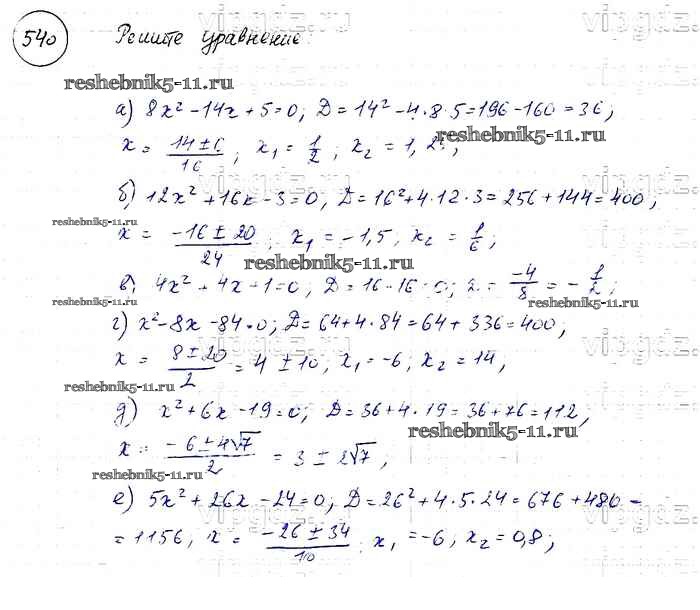 540 Решите уравнение:
reshebnik5-11.ru
а) 8x² - 14x + 5 = 0; D = 14² - 4·8·5 = 196 - 160 = 36;
reshebnik5-11.ru
x = (14 ± 6)/16; x₁ = 1/2; x₂ = 1,25;
б) 12x² + 16x - 3 = 0; D = 16² + 4·12·3 = 256 + 144 = 400;
reshebnik5-11.ru
x = (-16 ± 20)/24; x₁ = -1,5; x₂ = 1/6;
reshebnik5-11.ru
в) 4x² + 4x + 1 = 0; D = 16 - 16 = 0; x = -4/8 = -1/2;
reshebnik5-11.ru
reshebnik5-11.ru
г) x² - 8x - 84 = 0; D = 64 + 4·84 = 64 + 336 = 400,
x = (8 ± 20)/2 = 4 ± 10; x₁ = -6; x₂ = 14,
reshebnik5-11.ru
д) x² + 6x - 19 = 0; D = 36 + 4·19 = 36 + 76 = 112;
reshebnik5-11.ru
x = (-6 ± 4√7)/2 = 3 ± 2√7,
reshebnik5-11.ru
е) 5x² + 26x - 24 = 0; D = 26² + 4·5·24 = 676 + 480 =
= 1156, x = (-26 ± 34)/10; x₁ = -6, x₂ = 0,8;
vipgdz.ru